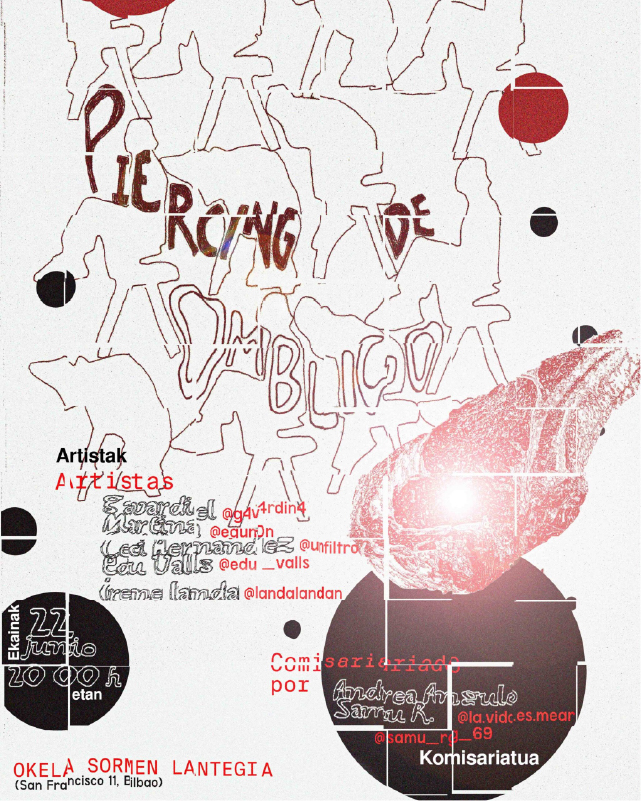 PIERCING DE
OMBLIGO
Artistak
Artistas
@g4v4rdin4
Martina @egun0n
Ceci Hernandez @unfiltro
Edu Valls @edu__valls
Irene Landa @landalandan
Ekainak
22
junio
20 00 h
etan
Comisariariado
por
Andrea Angulo
Samu R. @la.vida.es.mear
@samu_rg_69
Komisariatua
OKELA SORMEN LANTEGIA
(San Francisco 11, Bilbao)